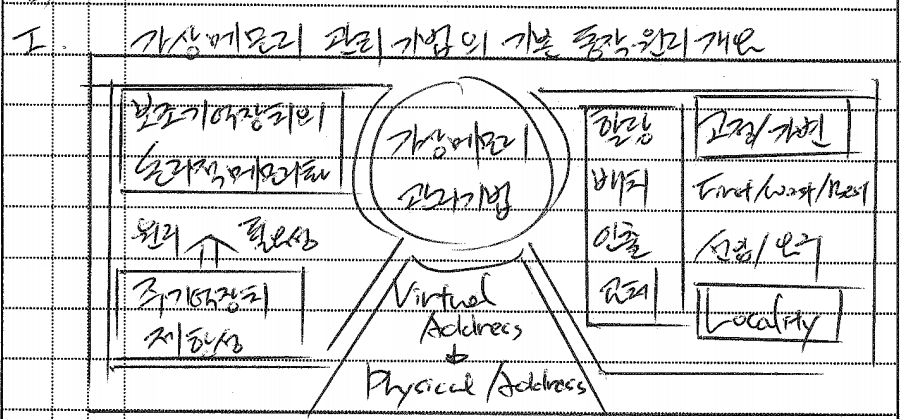 I. 가상메모리 관리 기법의 기본 동작원리 개요
보조기억장치의
논리적메모리화
원리 필요성
주기억장치
제한성
가상메모리
관리기법
Virtual
Address
Physical Address
할당 고정/가변
배치 First/Worst/Best
인출 선입/요구
교체 Locality